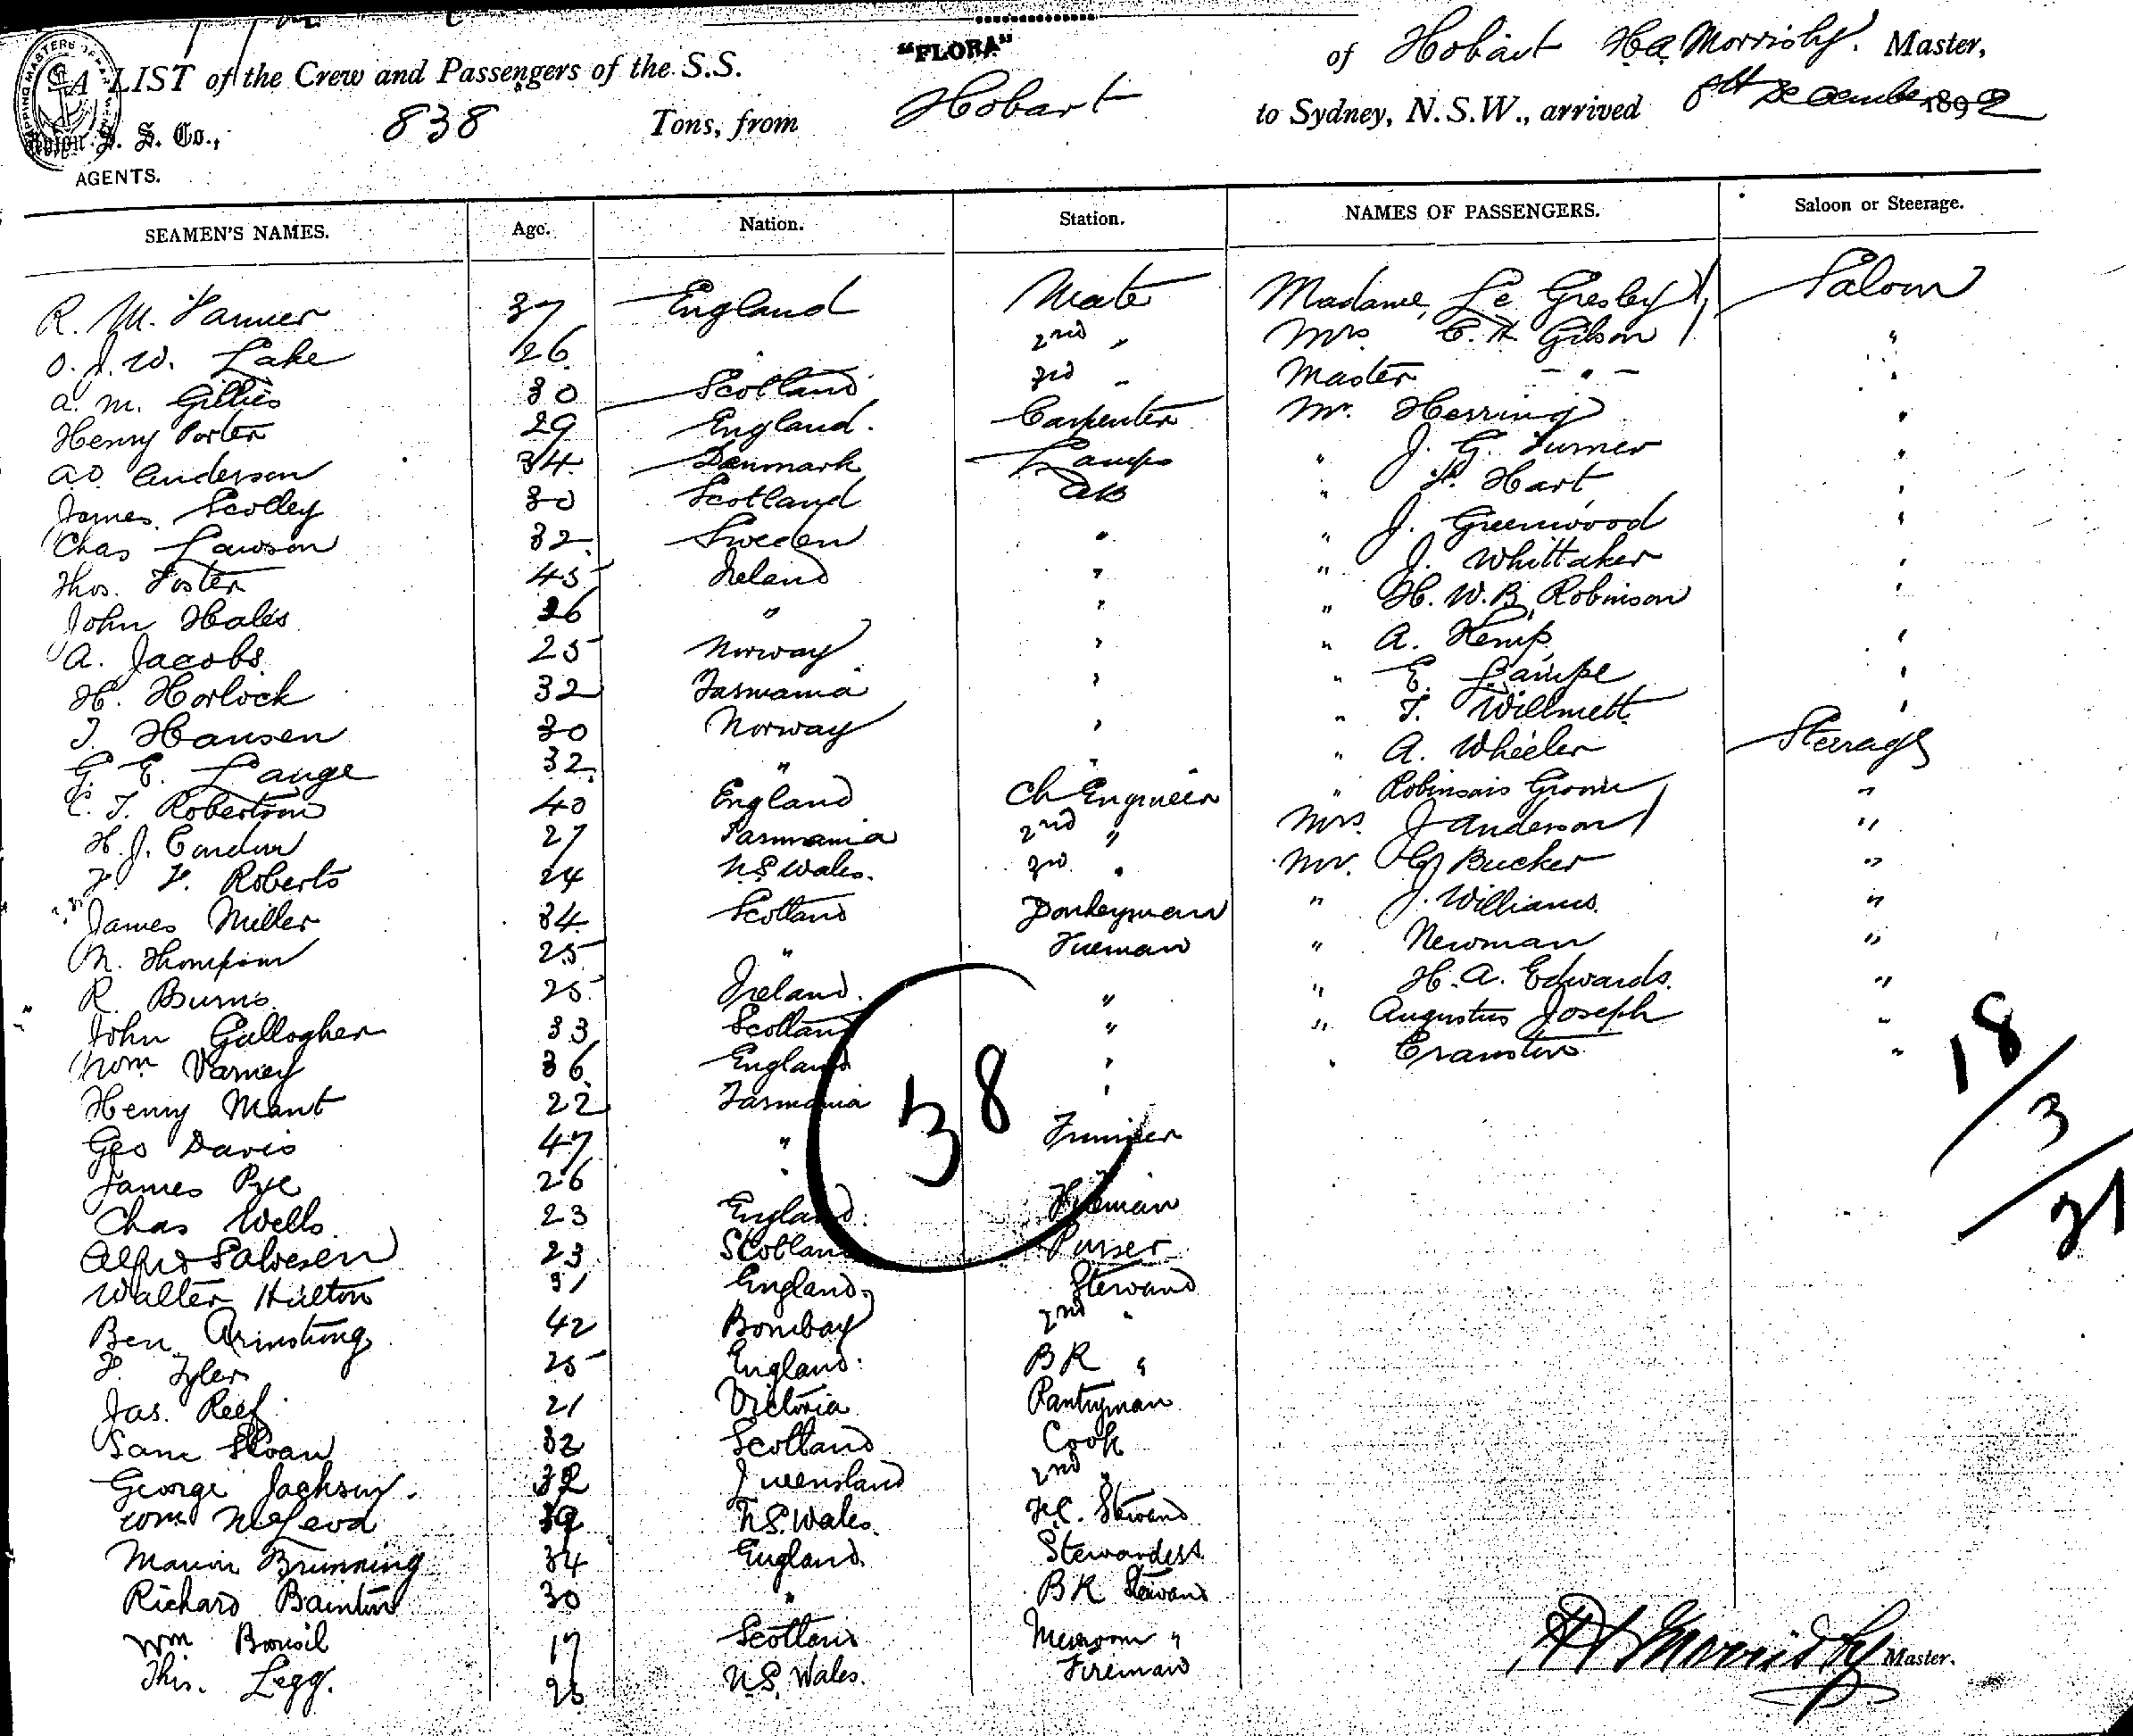 A LIST of the Crew and Passengers of the S.S. "FLORA" of Hobart H.A. Morrisby. Master,
Union S. S. Co., 838 Tons, from Hobart to Sydney, N.S.W., arrived 8th December 1892
AGENTS.
SEAMEN'S NAMES. Age. Nation. Station. NAMES OF PASSENGERS. Saloon or Steerage.
R. M. 37 England Mate Madame, Le Gresley Saloon
O. J. W. Lake 26 " 2nd " Mrs C. H Gibson "
A. M. Gillies 30 Scotland 3rd " Master - " - "
Henry Porter 29 England. Carpenter Mr. Herring "
A.D. Anderson 34 Denmark Lamps " J. G. Turner "
James Scolley 30 Scotland AB " F. Hart "
Chas Lawson 32 Sweden " " J. Greenwood "
Thos. Foster 45 Ireland " " J. Whittaker "
John Hales 26 " " " H. W. B. Robinson "
A. Jacobs 25 Norway " " A. Kemp "
H. Horlock 32 Tasmania " " E. Lampe "
J. Hansen 30 Norway " " T. Willmett "
G. E. Lange 32 " " " A. Wheeler Steerage
C. T. Robertson 40 England Ch Engineer " Robinsons Groom "
H. J. 27 Tasmania 2nd " Mrs. J Anderson "
F. F. Roberts 24 N.S Wales. 3rd " Mr. G Bucker "
James Miller 34 Scotland Donkeyman " J. Williams. "
N. Thompson 25 " Fireman " Newman "
R. Burns 25 Ireland. " " H. A. Edwards. "
John Gallogher 33 Scotland " " Augustus Joseph "
Wm Varney 36 England " " Cranston "
Henry Mant 22 Tasmania "
Geo Davis 47 " Trimmer
James Pye 26 " "
Chas Wells 23 England. Fireman
Alfred Salvesen 23 Scotland Purser
Walter Hilton 31 England. Steward
Ben Armstrong 42 Bombay 2nd "
F. Tyler 25 England. BR "
Jas. Reef 21 Victoria Pantryman
Sam Sloan 32 Scotland Cook
George Jackson. 32 Queensland 2nd "
Wm McLeod 39 N.S. Wales. F.C. Steward
Marion Brunning 34 England. Stewardess
Richard Bainton 30 " BR Steward
Wm 17 Scotland Messroom "
Thos. Legg. 25 N.S. Wales. Fireman
38
18
3
21
H A Morrisby Master.